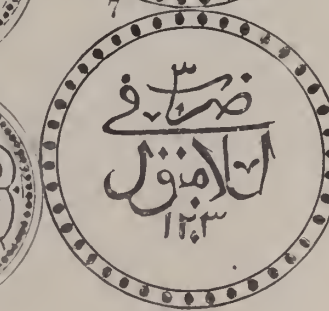 7
٣
ضرب في
اسلامبول
١٢٠٣